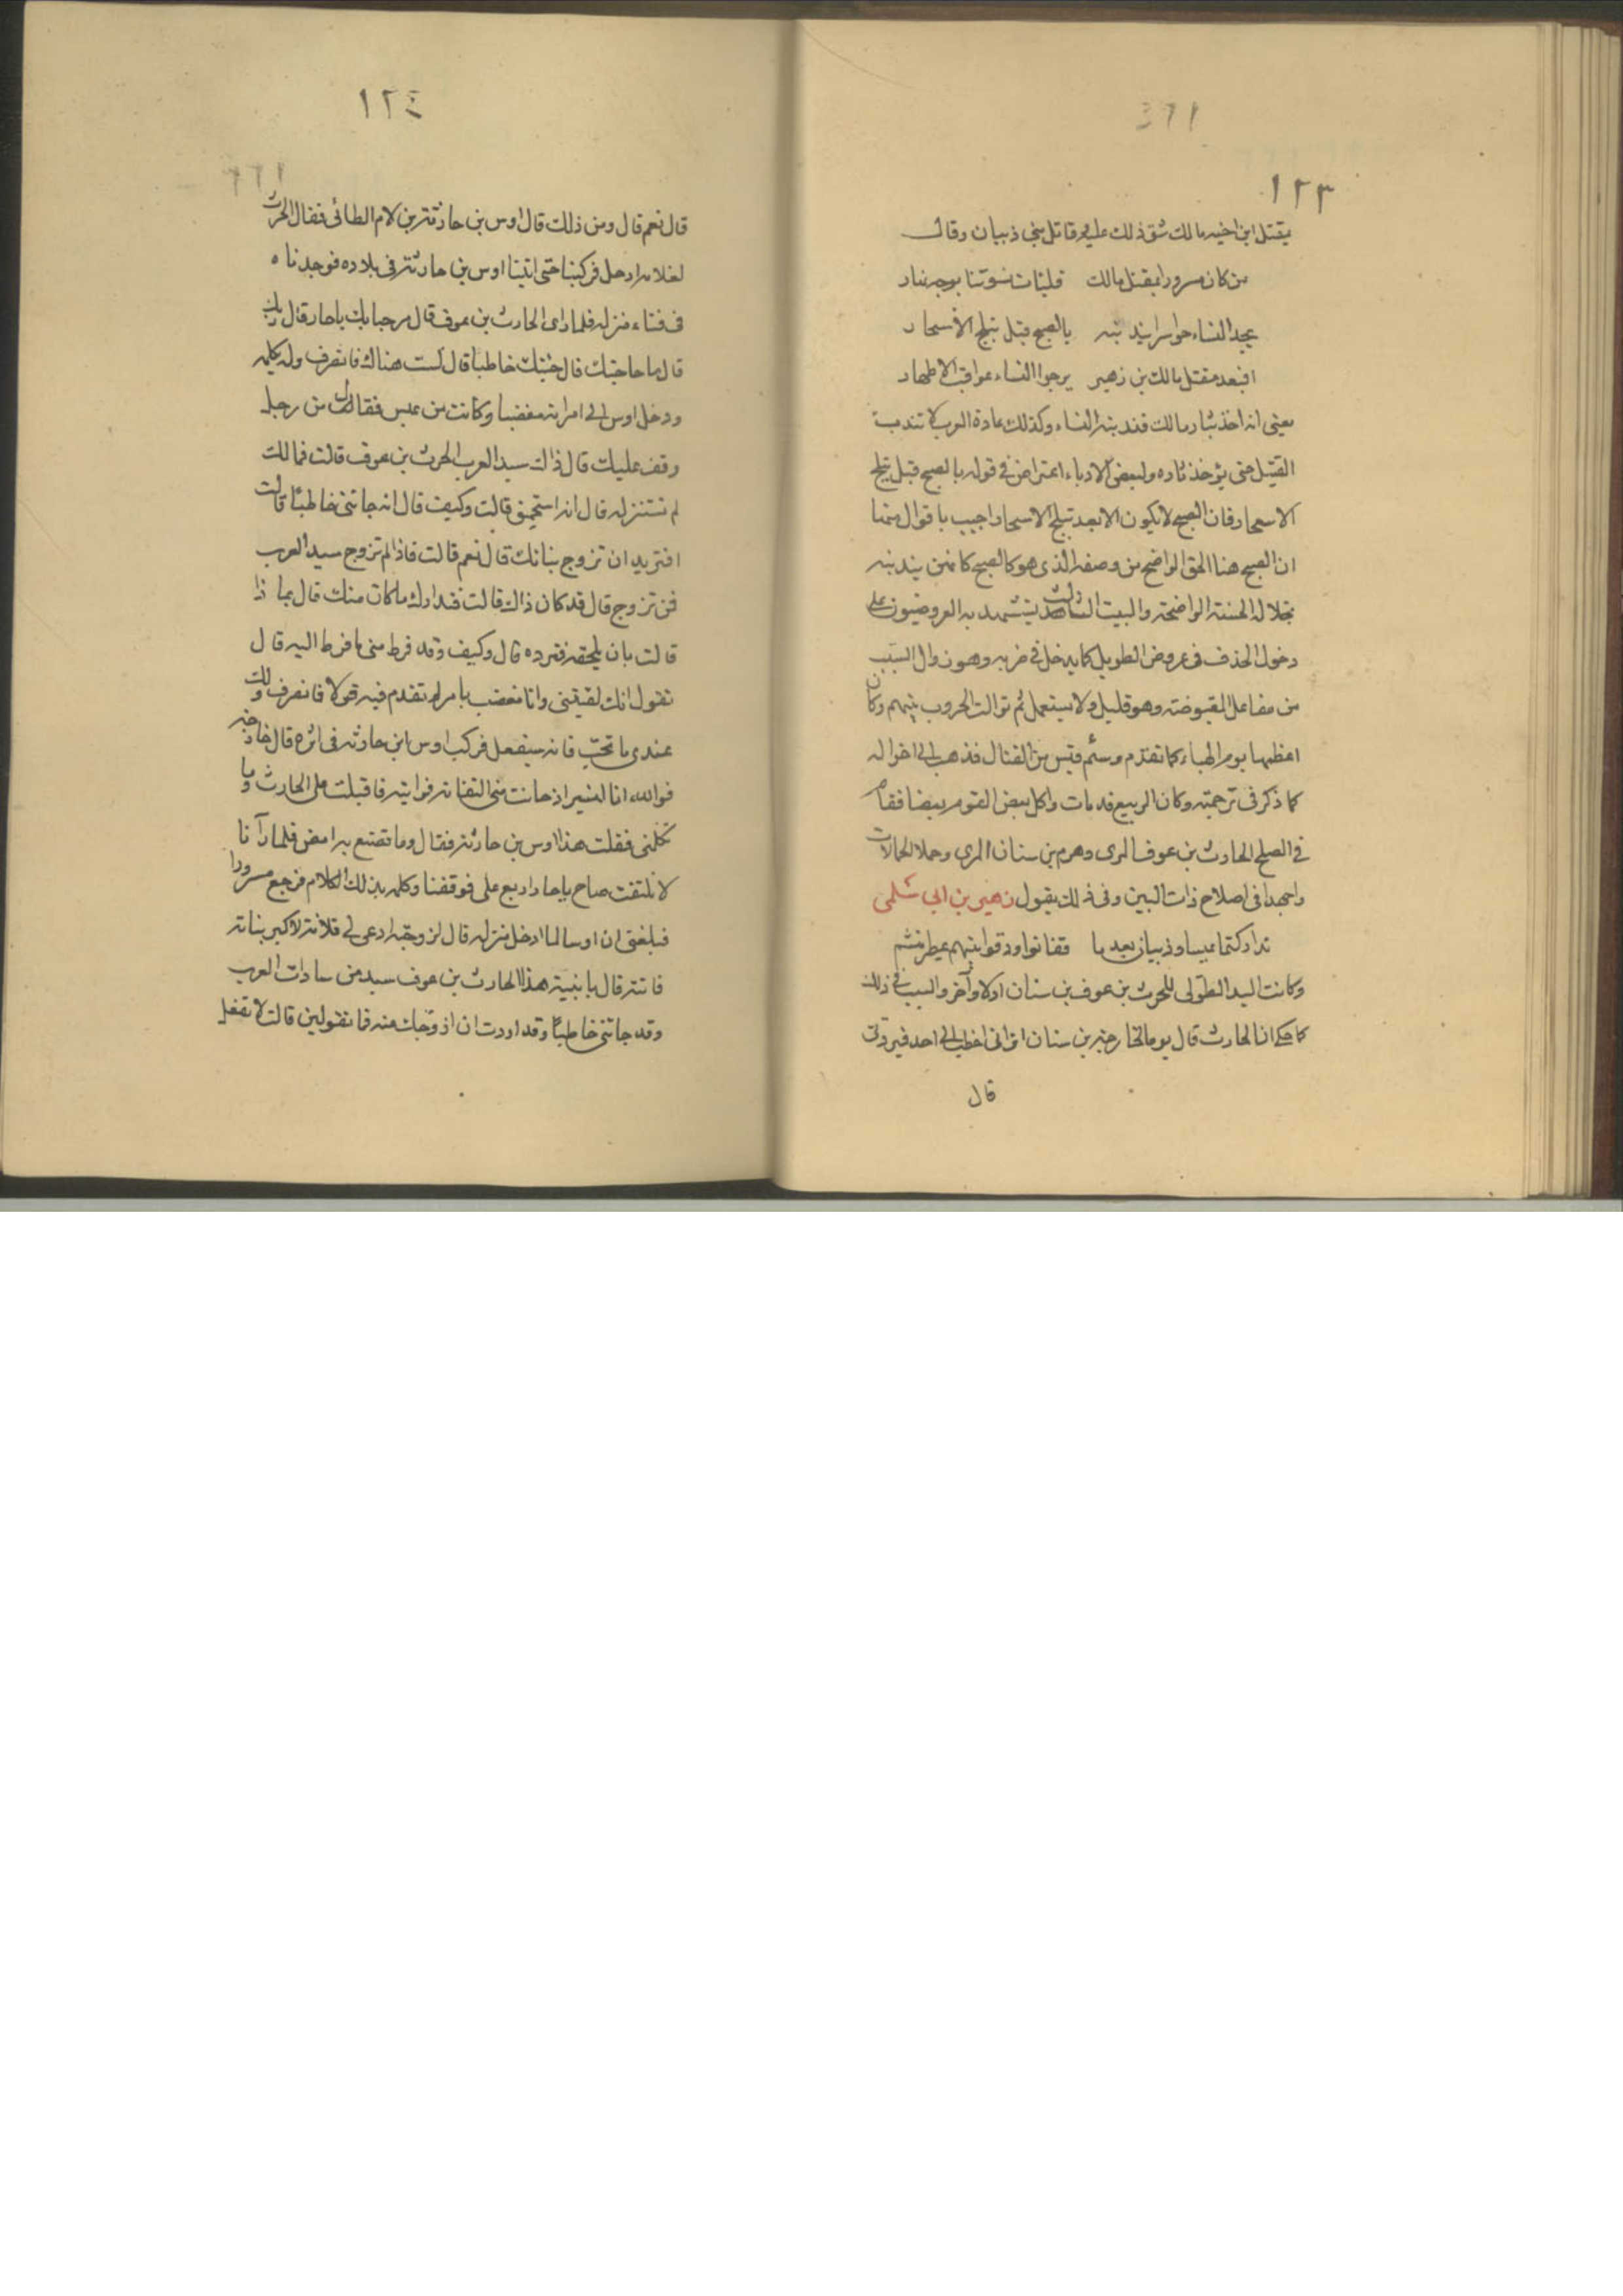 ١٢٣
بقتل ابن اخيه مالك شق ذلك عليه وقاتل بني ذبيان وقال
من كان مسرورا بمقتل مالك فليأت نسوتنا بوجه نهار
يجد النساء حواسرا يندبنه بالصبح قبل تبلج الأسحار
افبعد مقتل مالك بن زهير يرجوا النساء عواقب الاطهار
يعني انه اخذ بثار مالك فندبته النساء وكذلك عادة العرب لا تندب
القتيل حتى يؤخذ ثاره ولبعض الادباء اعتراض في قوله بالصبح قبل تبلج
الاسحار فان الصبح لا يكون الا بعد تبلج الاسحار واجيب باقوال منها
ان الصبح هنا الحق الواضح من وصفه الذي هو كالصبح كانهن يندبنه
بخلاله الحسنة الواضحة والبيت الثالث يستشهد به العروضيون على
دخول الحذف في عروض الطويل كما يدخل في ضربه وهو زوال السبب
من مفاعل المقبوضة وهو قليل ولا يستعمل ثم توالت الحروب بينهم وكان
اعظمها يوم الهباء كما تقدم وسئم قيس من القتال فذهب الى اخواله
كما ذكر في ترجمته وكان الربيع قد مات واكل بعض القوم بعضا فقام
في الصلح الحارث بن عوف المري وهرم بن سنان المري وحملا الحمالات
واجهدا في اصلاح ذات البين وفي ذلك يقول زهير بن ابي سلمى
تداركتما عبسا وذبيان بعدما تفانوا ودقوا بينهم عطر منشم
وكانت اليد الطولى للحرث بن عوف بن سنان اولا وآخر والسبب في ذلك
كما حكي ان الحارث قال يوما لخارجة بن سنان اتراني اخطب الى احد فيردني
قال
١٢٤
قال نعم قال ومن ذلك قال اوس بن حارثة بن لام الطائى فقال الحرث
لغلامه ارحل فركبنا حتى اتينا اوس بن حارثة في بلاده فوجدناه
في فناء منزله فلما راى الحارث بن عوف قال مرحبا بك يا حار قال وبك
قال ما حاجتك قال جئتك خاطبا قال لست هناك فانصرف ولم يكلمه
ودخل اوس الى امراته مغضبا وكانت من عبس فقالت من رجل
وقف عليك قال ذاك سيد العرب الحرث بن عوف قالت فمالك
لم تستنزله قال انه استحمق قالت وكيف قال انه جاتني خاطبًا قالت
افتريد ان تزوج بناتك قال نعم قالت فاذا لم تزوج سيد العرب
فمن تزوج قال قد كان ذاك قالت فتدارك ما كان منك قال بماذا
قالت بان تلحقه فترده قال وكيف وقد فرط مني ما فرط اليه قال
تقول انك لقيتني وانا مغضب بامر لم تقدم فيه قولا فانصرف ولك
عندي ما تحب فانه سيفعل فركب اوس ابن حارثه في اثره قال خارجة
فوالله انا لنسير اذ حانت مني التفاتة فرايته فاقبلت على الحارث وما
تكلني فقلت هذا اوس بن حارثة فقال وما تصنع به امض فلما رآنا
لا نلتفت صاح يا حار اربع علي فوقفنا وكلمه بذلك الكلام فرجع مسرورا
فبلغني ان اوسا لما ادخل منزله قال لزوجته ادعى لي فلانة لاكبر بناته
فاتته قال يا بنية هذا الحارث بن عوف سيد من سادات العرب
وقد جاتني خاطبًا وقد اردت ان ازوجك منه فما تقولين قالت لا تفعل